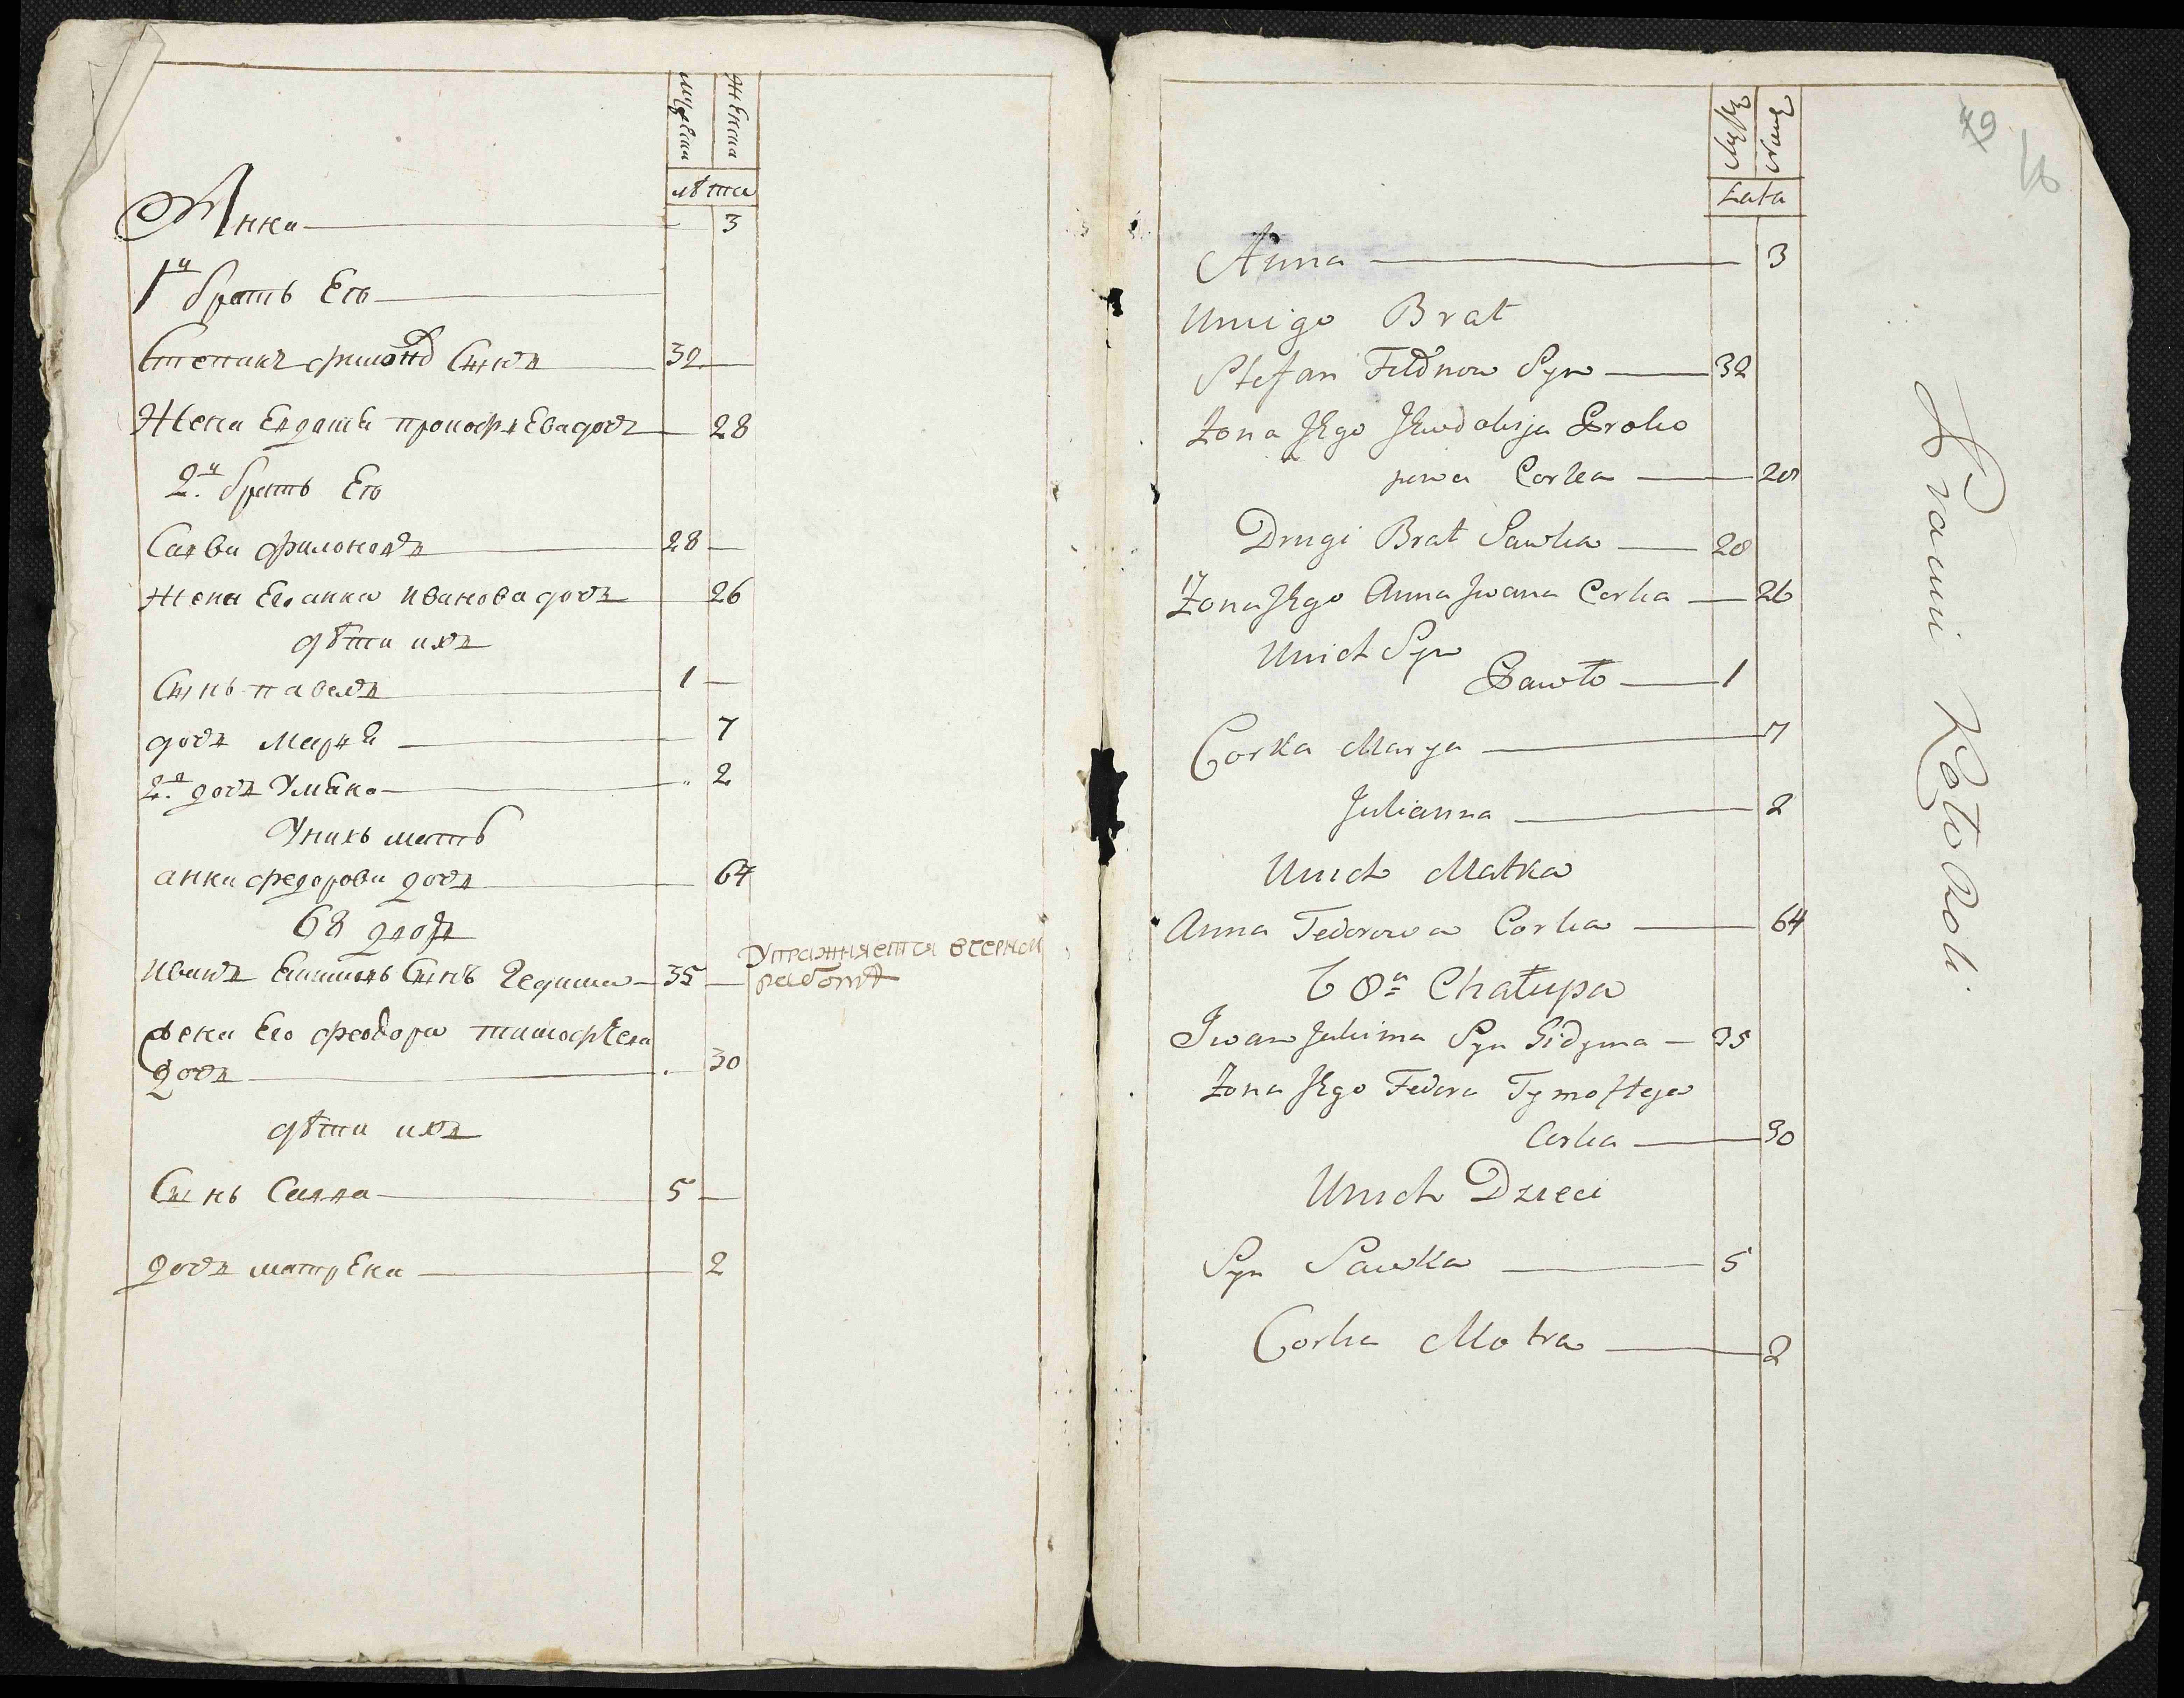 мужеска
женска
лѣта
Анна 3
1й братъ Его
Степанъ филонов Сынъ 32
Жена Евдокия прокофьева дочь 28
2й братъ Его
Савва филоновъ 28
жена Его анна Иванова дочь 26
дѣти ихъ
Сынъ павелъ 1
дочь Мария 7
2я дочь Улияна 2
Унихъ мать
анна федорова дочь 64
68 двор
Иванъ Екимовъ Сынъ Гедима 35
Упражняется вчерной
работѣ
жена Его феодора тимофѣева
дочь 30
дѣти ихъ
Сынъ Савва 5
дочь матрена 2
79
Męskie
Żeńskie
Lata
Anna 3
Uniego Brat
Stefan Fildnow Syn 32
Żona Jego Jewdokija Proko
powa Corka 28
Drugi Brat Sawka 28
Żona Jego Anna Iwana Corka 26
Unich Syn
Pawło 1
Corka Marya 7
Julianna 2
Unich Matka
Anna Fedorowa Corka 64
68a Chałupa
Iwan Jakima Syn Gidyma 35
Żona Jego Fedora Tymofteja
Corka 30
Unich Dzieci
Syn Sawka 5
Corka Motra 2